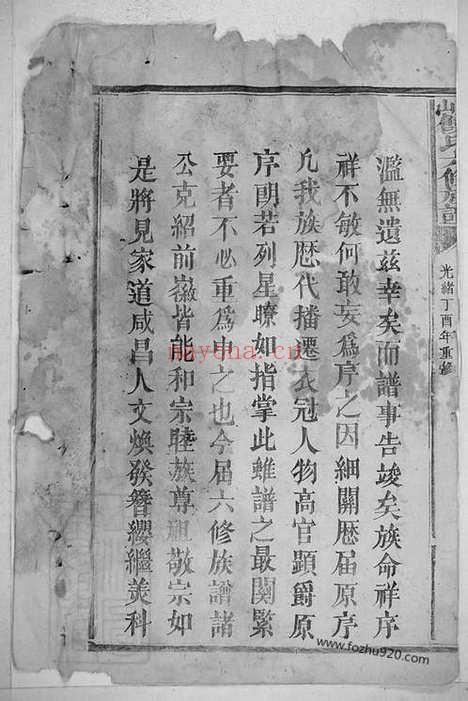 氏六修族譜
光緒丁酉年重修
濫無遺茲幸矣而譜事告竣矣族命祥序
祥不敏何敢妄爲序之因細閱歷届原序
凢我族歷代播遷衣冠人物高官顯爵原
序朗若列星瞭如指掌此雖譜之最関緊
要者不必重爲申之也今届六修族譜諸
公克紹前徽皆能和宗睦族尊祖敬宗如
是將見家道咸昌人文煥發簪纓繼美科
nayona.cn
www.fozhu920.com